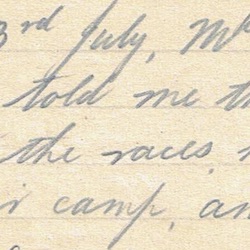 3rd July, Mr
told me t
the races
camp, an